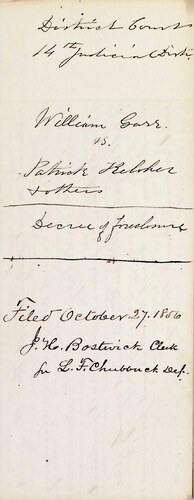 District Court
14th Judicial Distr.
William Garr
vs.
Patrick Kelcher
& others
Decree of foreclosure
Filed October 27. 1856
J. H. Bostwick Clerk
for L. F. Chubbuck Def.